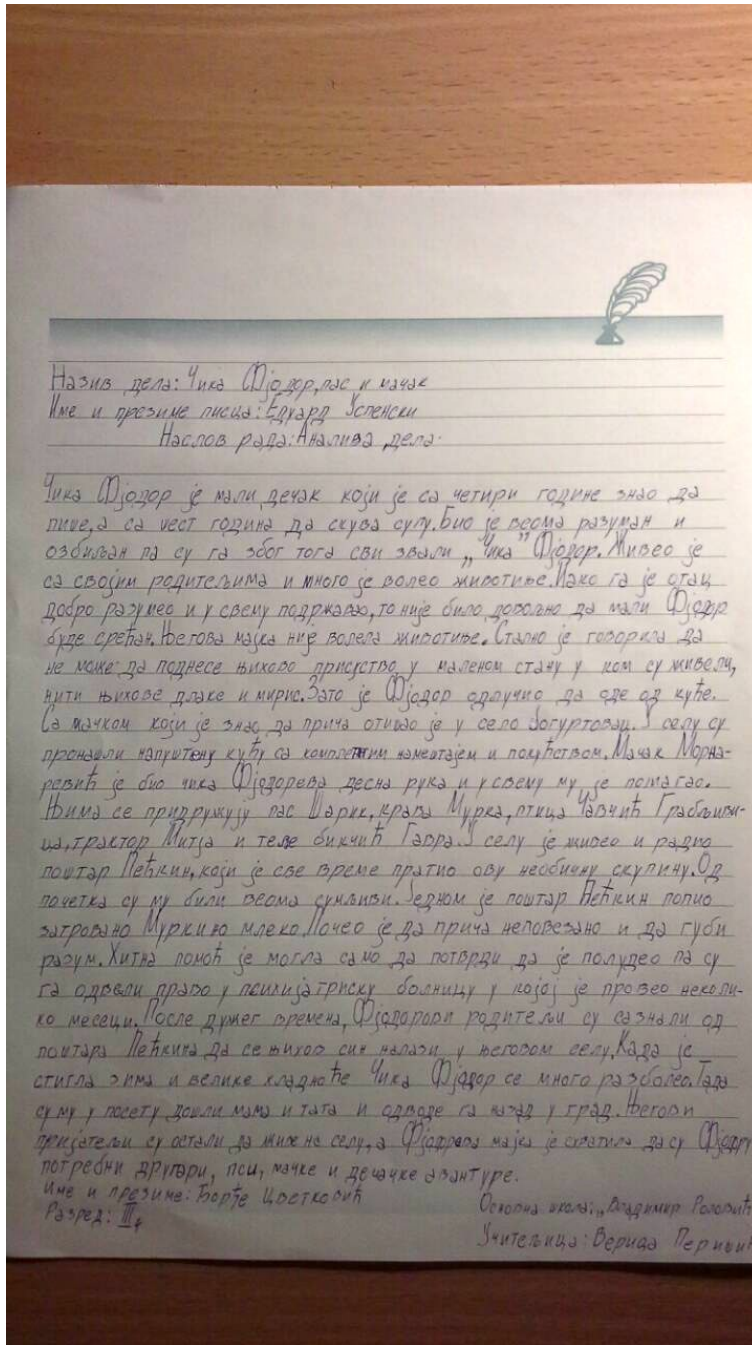 Назив дела: Чика Фјодор, пас и мачак
Име и презиме писца: Едуард Успенски
Наслов рада: Анализа дела.
Чика Фјодор је мали дечак који је са четири године знао да
пише, а са шест година да скува супу. Био је веома разуман и
озбиљан па су га због тога сви звали „Чика" Фјодор. Живео је
са својим родитељима и много је волео животиње. Иако га је отац
добро разумео и у свему подржавао, то није било довољно да мали Фјодор
буде срећан. Његова мајка није волела животиње. Стално је говорила да
не може да поднесе њихово присуство у маленом стану у ком су живели,
нити њихове длаке и мирис. Зато је Фјодор одлучио да оде од куће.
Са мачком који је знао да прича отишао је у село Јогуртовац. У селу су
пронашли напуштену кућу са комплетним намештајем и покућством. Мачак Морна-
ревић је био чика Фјодорева десна рука и у свему му је помагао.
Њима се придружују пас Шарик, крава Мурка, птица Чавчић Грабљиви-
ца, трактор Митја и теле бикчић Гавра. У селу је живео и радио
поштар Пећкин, који је све време пратио ову необичну скупину. Од
почетка су му били веома сумљиви. Једном је поштар Пећкин попио
затровано Муркино млеко. Почео је да прича неповезано и да губи
разум. Хитна помоћ је могла само да потврди да је полудео па су
га одвели право у психијатриску болницу у којој је провео неколи-
ко месеци. После дужег времена, Фјодорови родитељи су сазнали од
поштара Пећкина да се њихов син налази у његовом селу. Када је
стигла зима и велике хладноће Чика Фјодор се много разболео. Тада
су му у посету дошли мама и тата и одводе га назад у град. Његови
пријатељи су остали да живе на селу, а Фјодрова мајка је схватила да су Фјодру
потребни другари, пси, мачке и дечачке авантуре.
Име и презиме: Ђорђе Цветковић
Разред: III4
Основна школа: „Владимир Роловић
Учитељица: Верица Перишић